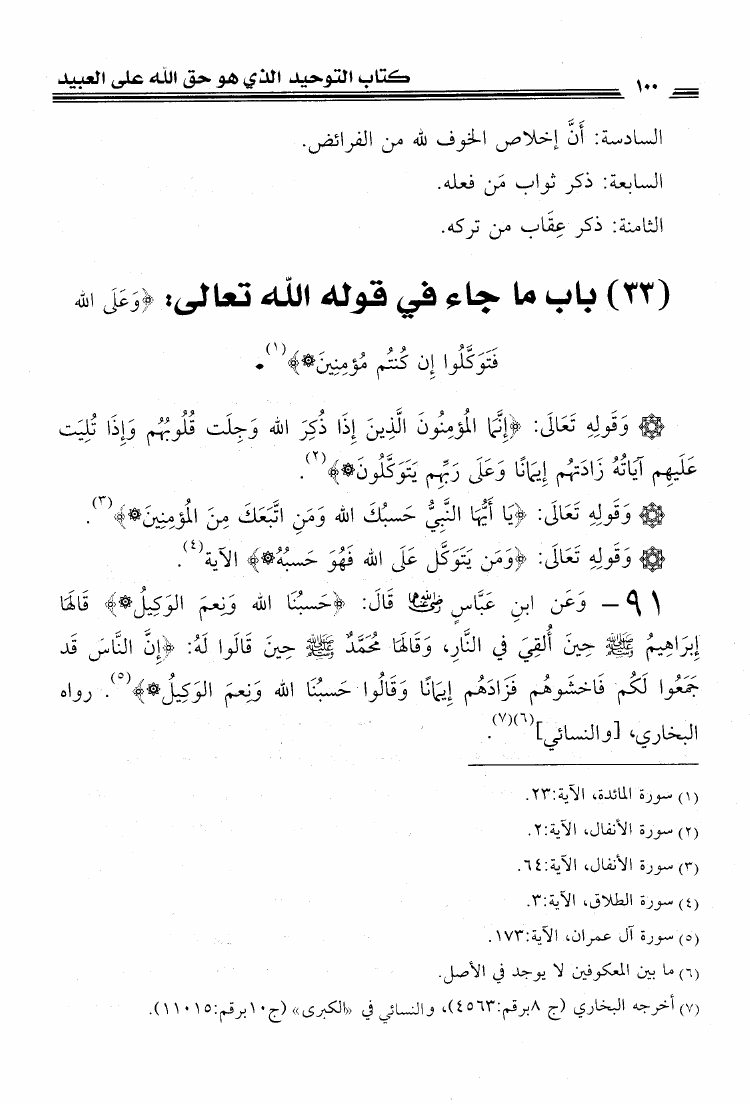 ١٠٠ كتاب التوحيد الذي هو حق الله على العبيد
السادسة: أَنَّ إخلاص الخوف لله من الفرائض.
السابعة: ذكر ثواب مَن فعله.
الثامنة: ذكر عِقَاب من تركه.
(٣٣) باب ما جاء في قوله الله تعالى: ﴿وَعَلَى الله
فَتَوَكَّلُوا إِن كُنتُم مُؤمِنِينَ۞﴾(١).
۞ وَقَولِهِ تَعَالَى: ﴿إِنَّمَا المُؤمِنُونَ الَّذِينَ إِذَا ذُكِرَ الله وَجِلَت قُلُوبُهُم وَإِذَا تُلِيَت
عَلَيهِم آيَاتُهُ زَادَتهُم إِيمَانًا وَعَلَى رَبِّهِم يَتَوَكَّلُونَ۞﴾(٢).
۞ وَقَولِهِ تَعَالَى: ﴿يَا أَيُّهَا النَّبِيُّ حَسبُكَ الله وَمَنِ اتَّبَعَكَ مِنَ المُؤمِنِينَ۞﴾(٣).
۞ وَقَولِهِ تَعَالَى: ﴿وَمَن يَتَوَكَّل عَلَى الله فَهُوَ حَسبُهُ۞﴾ الآية(٤).
٩١ – وَعَن ابنِ عَبَّاسٍ رضي الله عنهما قَالَ: ﴿حَسبُنَا الله وَنِعمَ الوَكِيلُ۞﴾ قَالَهَا
إِبرَاهِيمُ ﷺ حِينَ أُلقِيَ في النَّارِ، وَقَالَهَا مُحَمَّدٌ ﷺ حِينَ قَالُوا لَهُ: ﴿إِنَّ النَّاسَ قَد
جَمَعُوا لَكُم فَاخشَوهُم فَزَادَهُم إِيمَانًا وَقَالُوا حَسبُنَا الله وَنِعمَ الوَكِيلُ۞﴾(٥). رواه
البخاري، [والنسائي](٦)(٧).
(١) سورة المائدة، الآية:٢٣.
(٢) سورة الأنفال، الآية:٢.
(٣) سورة الأنفال، الآية:٦٤.
(٤) سورة الطلاق، الآية:٣.
(٥) سورة آل عمران، الآية:١٧٣.
(٦) ما بين المعكوفين لا يوجد في الأصل.
(٧) أخرجه البخاري (ج ٨برقم:٤٥٦٣)، والنسائي في «الكبرى» (ج١٠برقم:١١٠١٥).